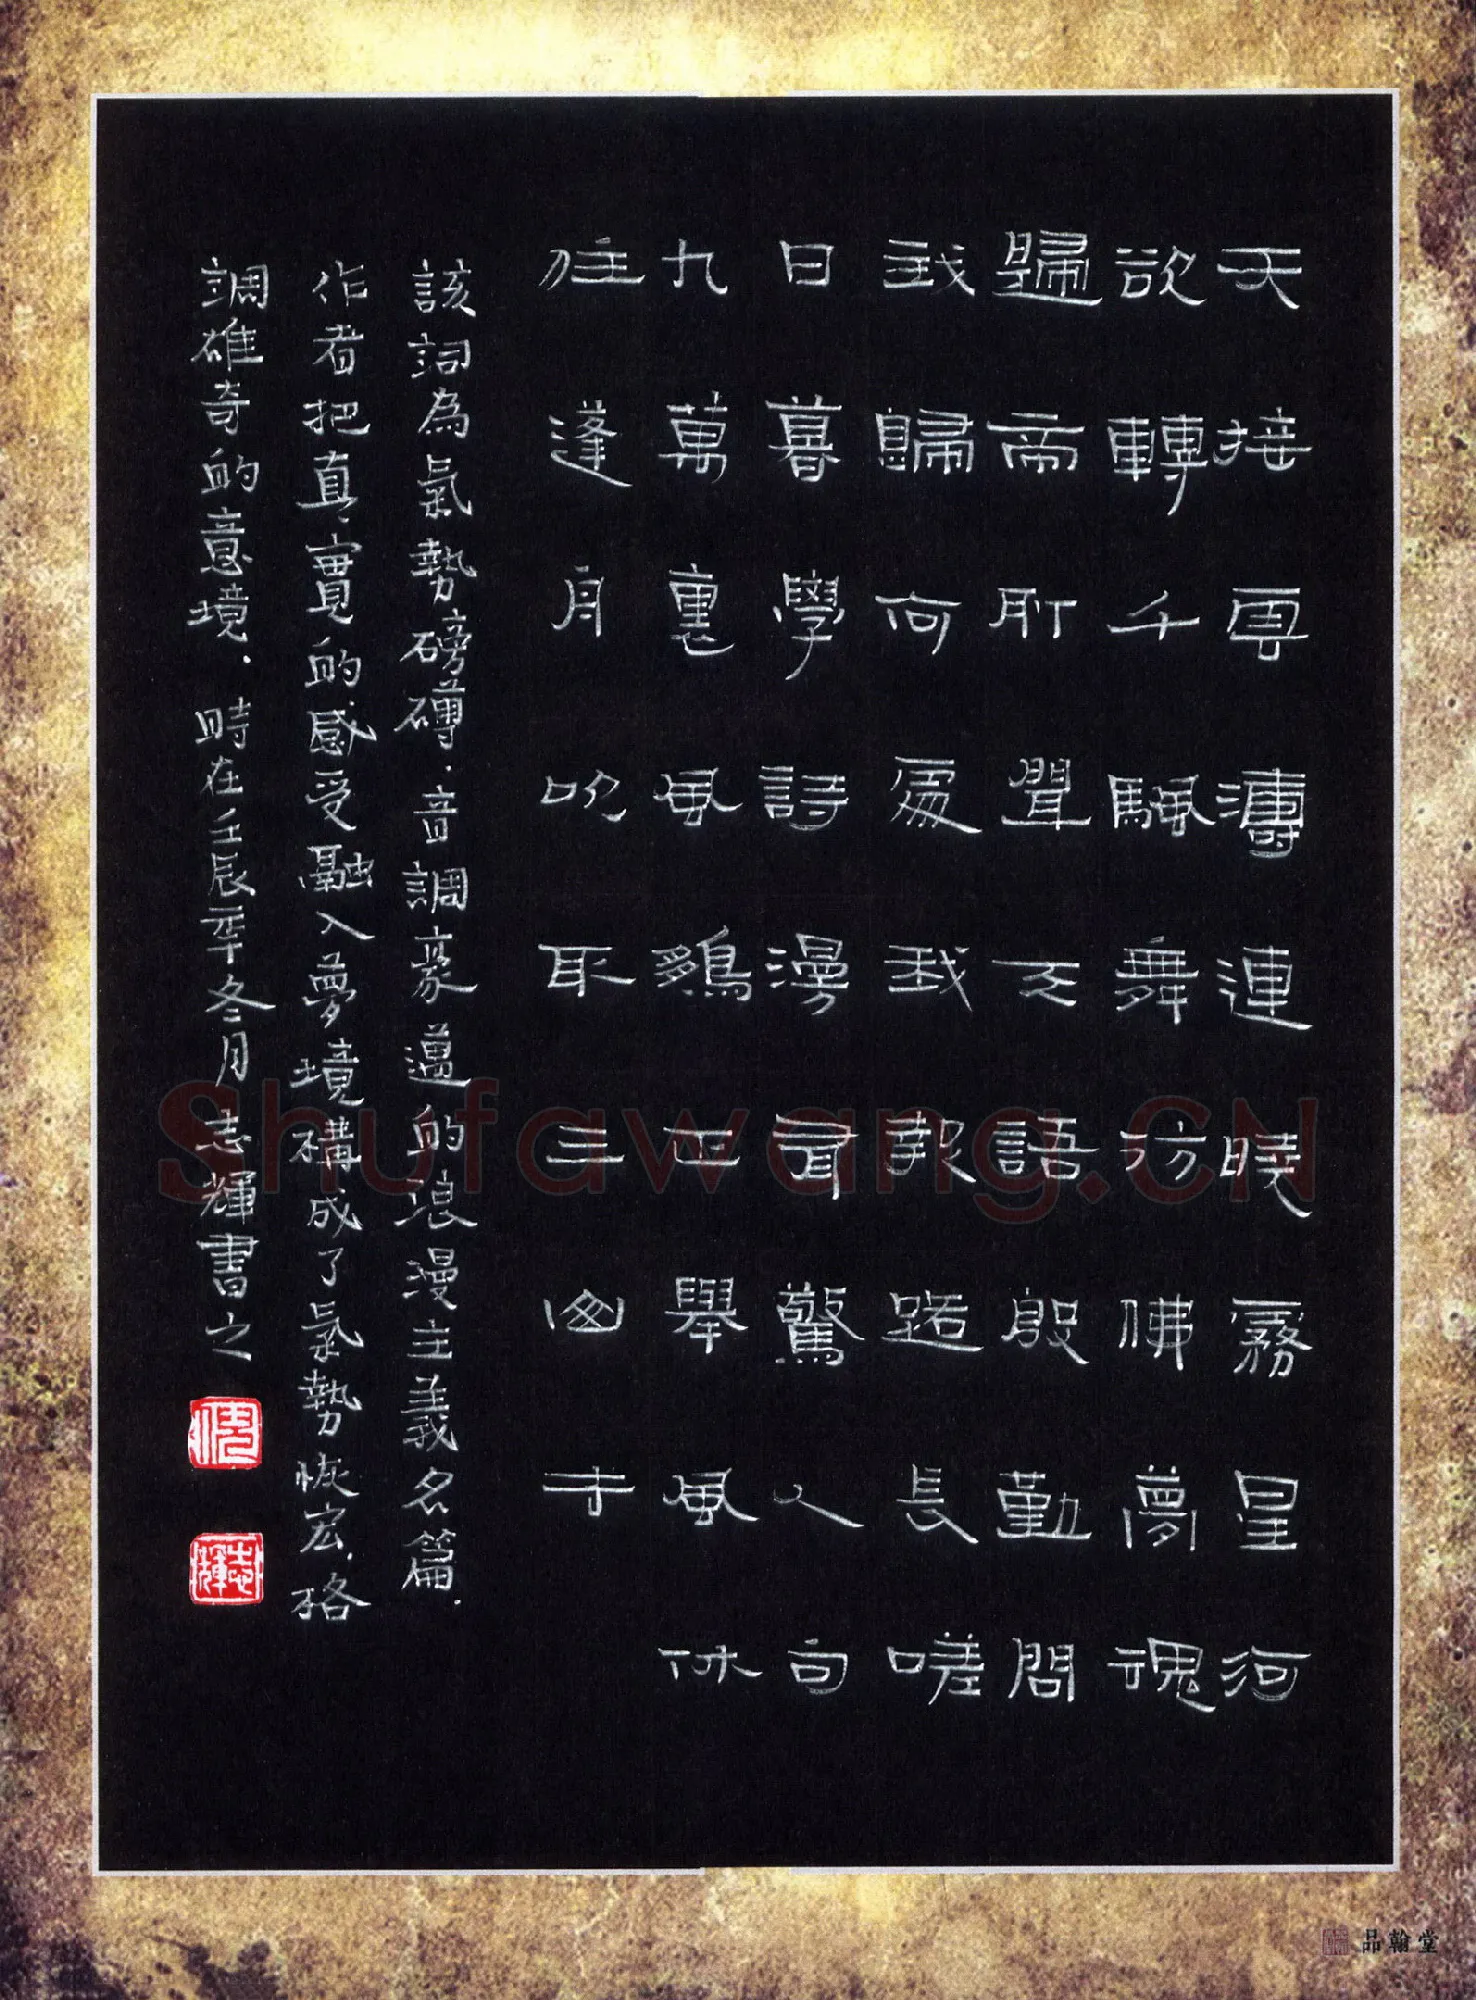 天接雲濤連曉霧星河
欲轉千颿舞彷佛夢魂
歸帝所聞天語殷勤問
我歸何處我報路長嗟
日暮學詩漫有驚人句
九萬裏風鵬正舉風休
往蓬舟吹取三山去
該詞為氣勢磅礴.音調豪邁的浪漫主義名篇.
作者把真實的感受融入夢境構成了氣勢恢宏.格
調雄奇的意境.時在壬辰年冬月志輝書之
志輝
Shufawang.CN
品翰堂